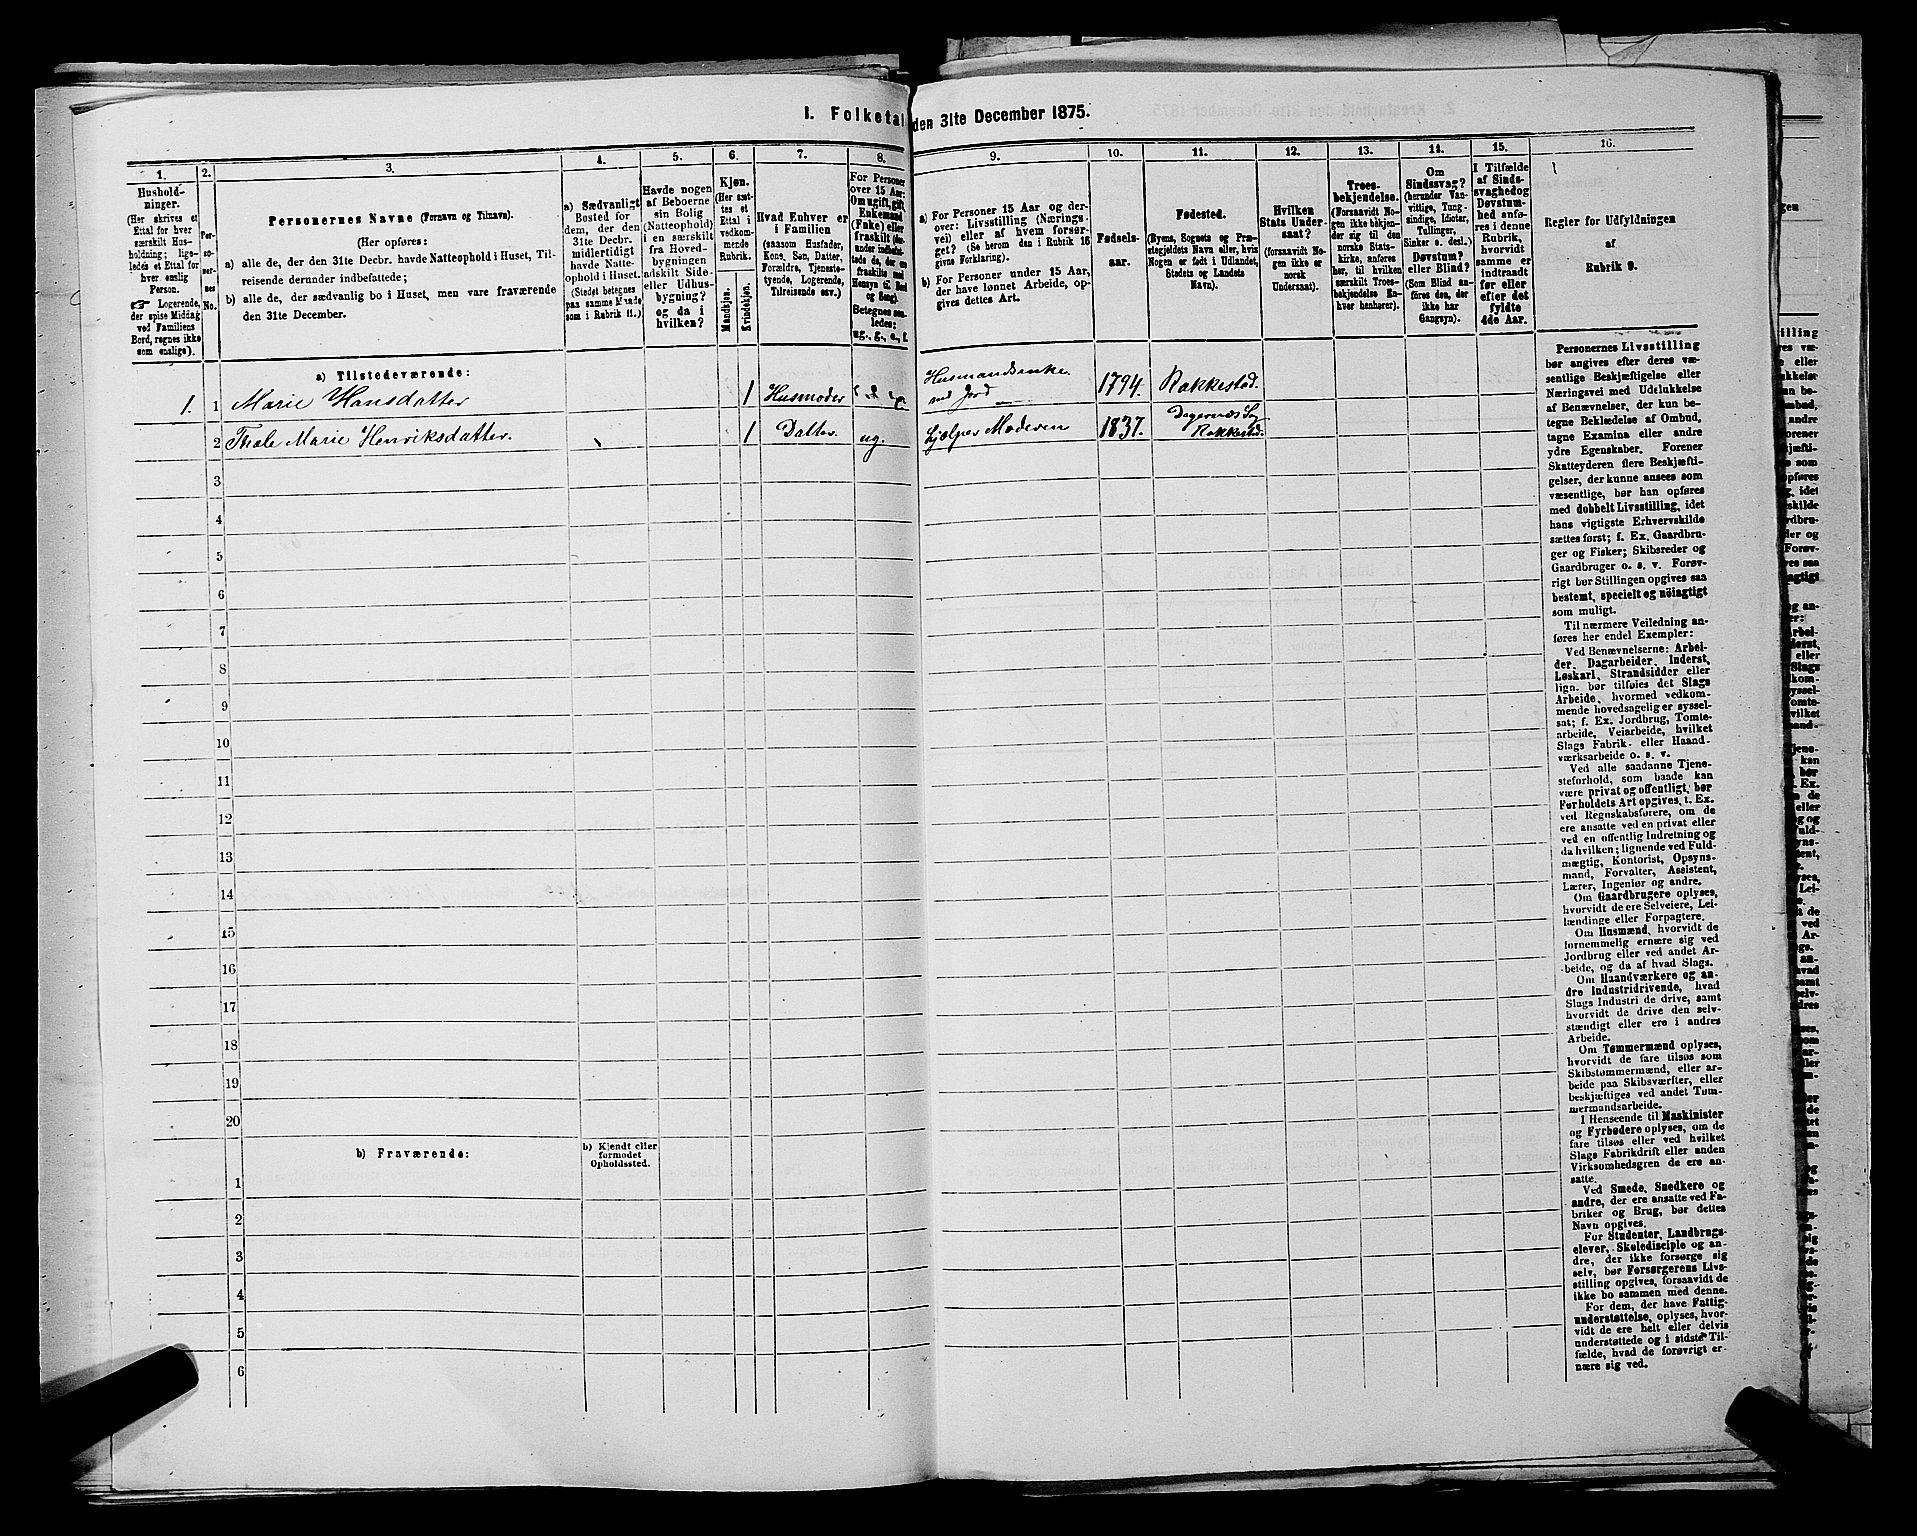 1. Folketal den 31te December 1875.
1.
2.
3.
4.
5.
6.
7.
8.
9.
10.
11.
12.
13.
14.
15.
16.
Hushold-
ninger.
(Her skrives et
Ettal for hver
særskilt Hus-
holdning; lige-
ledes et Ettal for
hver enslig
Person.
☞ Logerende,
der spise Middag
ved Familiens
Bord, regnes ikke
som enslige).
Per-
so-
ner-
nes
No.
Personernes Navne (Fornavn og Tilnavn).
(Her opføres:
a) alle de, der den 31te Decbr. havde Natteophold i Huset, Til-
reisende derunder indbefattede;
b) alle de, der sædvanlig bo i Huset, men vare fraværende
den 31te December.
a) Sædvanligt
Bosted for
dem, der den
31te Decbr.
midlertidigt
havde Natte-
ophold i Huset.
(Stedet betegnes
paa samme Maade
som i Rubrik 11.)
Havde nogen
af Beboerne
sin Bolig
(Natteophold)
i en særskilt
fra Hoved-
bygningen
adskilt Side-
eller Udhus-
bygning?
og da i
hvilken?
Kjøn.
(Her sæt-
tes et
Ettal i
vedkom-
mende
Rubrik.
Mandkjøn.
Kvindekjøn.
Hvad Enhver er
i Familien
(saasom Husfader,
Kone, Søn, Datter,
Forældre, Tjeneste-
tyende, Logerende,
Tilreisende osv.)
For Personer
over 15 Aar:
Om ugift, gift,
Enkemand
(Enke) eller
fraskilt
Betegnes saa-
ledes:
ug., g., e., f.
a) For Personer 15 Aar og der-
over: Livsstilling (Nærings-
vei) eller af hvem forsør-
get? (Se herom den i Rubrik 16
givne Forklaring).
b) For Personer under 15 Aar,
der have lønnet Arbeide, op-
gives dettes Art.
Fødsels-
aar.
Fødested.
(Byens, Sognets og Præ-
stegjeldets Navn eller, hvis
Nogen er født i Udlandet,
Stedets og Landets
Navn).
Hvilken
Stats Under-
saat?
(forsaavidt No-
gen ikke er
norsk
Undersaat).
Troes-
bekjendelse.
(Forsaavidt No-
gen ikke bekjen-
der sig til den
norske Stats-
kirke, anføres
her, til hvilken
særskilt Troes-
bekjendelse En-
hver henhører).
Om
Sindssvag?
(herunder Van-
vittige, Tung-
sindige, Idioter,
Tullinger,
Sinker o. desl.)
Døvstum?
eller Blind?
(Som Blind an-
føres den, der
ikke har
Gangsyn).
I Tilfælde
af Sinds-
svaghed og
Døvstum-
hed anfø-
res i denne
Rubrik,
hvorvidt
samme er
indtraadt
før eller
efter det
fyldte
4de Aar.
Regler for Udfyldningen
af
Rubrik 9.
a) Tilstedeværende:
1. 1 Marie Hansdatter 1 Husmoder Husmandsenke med Jord 1794. Rakkestad.
2 Thale Marie Henriksdatter. 1 Datter. ug. hjælper Moderen 1837. Degernæs Sog Rakkestad.
3
4
5
6
7
8
9
10
11
12
13
14
15
16
17
18
19
20
b) Fraværende:
b) Kjendt eller
formodet
Opholdssted.
1
2
3
4
5
6
Personernes Livsstilling
bør angives efter deres væ-
sentlige Beskjæftigelse eller
Næringsvei med Udelukkelse
af Benævnelser, der kun be-
tegne Beklædelse af Ombud,
tagne Examina eller andre
ydre Egenskaber. Forener
Skatteyderen flere Beskjæfti-
gelser, der kunne ansees som
væsentlige, bør han opføres
med dobbelt Livsstilling, idet
hans vigtigste Erhvervskilde
sættes først; f. Ex. Gaardbru-
ger og Fisker; Skibsreder og
Gaardbruger o. s. v. Forøv-
rigt bør Stillingen opgives saa
bestemt, specielt og nöiagtigt
som muligt.
Til nærmere Veiledning an-
føres her endel Exempler:
Ved Benævnelserne: Arbei-
der, Dagarbeider, Inderst,
Løskarl, Strandsidder eller
lign. bør tilføies det Slags
Arbeide, hvormed vedkom-
mende hovedsagelig er syssel-
sat; f. Ex. Jordbrug, Tomte-
arbeide, Veiarbeide, hvilket
Slags Fabrik- eller Haand-
værksarbeide o. s. v.
Ved alle saadanne Tjene-
steforhold, som baade kan
være privat og offentligt, bør
Forholdets Art opgives, t. Ex.
ved Regnskabsførere, om de
ere ansatte ved en privat eller
ved en offentlig Indretning og
da hvilken; lignende ved Fuld-
mægtig, Kontorist, Opsyns-
mand, Forvalter, Assistent,
Lærer, Ingeniør og andre.
Om Gaardbrugere oplyses,
hvorvidt de ere Selveiere, Lei-
lændinge eller Forpagtere.
Om Husmænd, hvorvidt de
fornemmelig ernære sig ved
Jordbrug eller ved andet Ar-
beide, og da af hvad Slags.
Om Haandværkere og an-
dre Industridrivende, hvad
Slags Industri de drive, samt
hvorvidt de drive den selv-
stændigt eller ere i andres
Arbeide.
Om Tømmermænd oplyses,
hvorvidt de fare tilsøs som
Skibstømmermænd, eller ar-
beide paa Skibsværfter, eller
beskjæftiges ved andet Tøm-
mermandsarbeide.
I Henseende til Maskinister
og Fyrbødere oplyses, om de
fare tilsøs eller ved hvilket
Slags Fabrikdrift eller anden
Virksomhedsgren de ere an-
satte.
Ved Smede, Snedkere og
andre, der ere ansatte ved Fa-
briker og Brug, bør dettes
Navn opgives.
For Studenter, Landbrugs-
elever, Skoledisciple og an-
dre, der ikke forsørge sig
selv, bør Forsørgerens Livs-
stilling opgives, forsaavidt de
ikke bo sammen med denne.
For dem, der have Fattig-
understøttelse, oplyses, hvor-
vidt de ere helt eller delvis
understøttede og i sidste Til-
fælde, hvad de forøvrigt er-
nære sig ved.